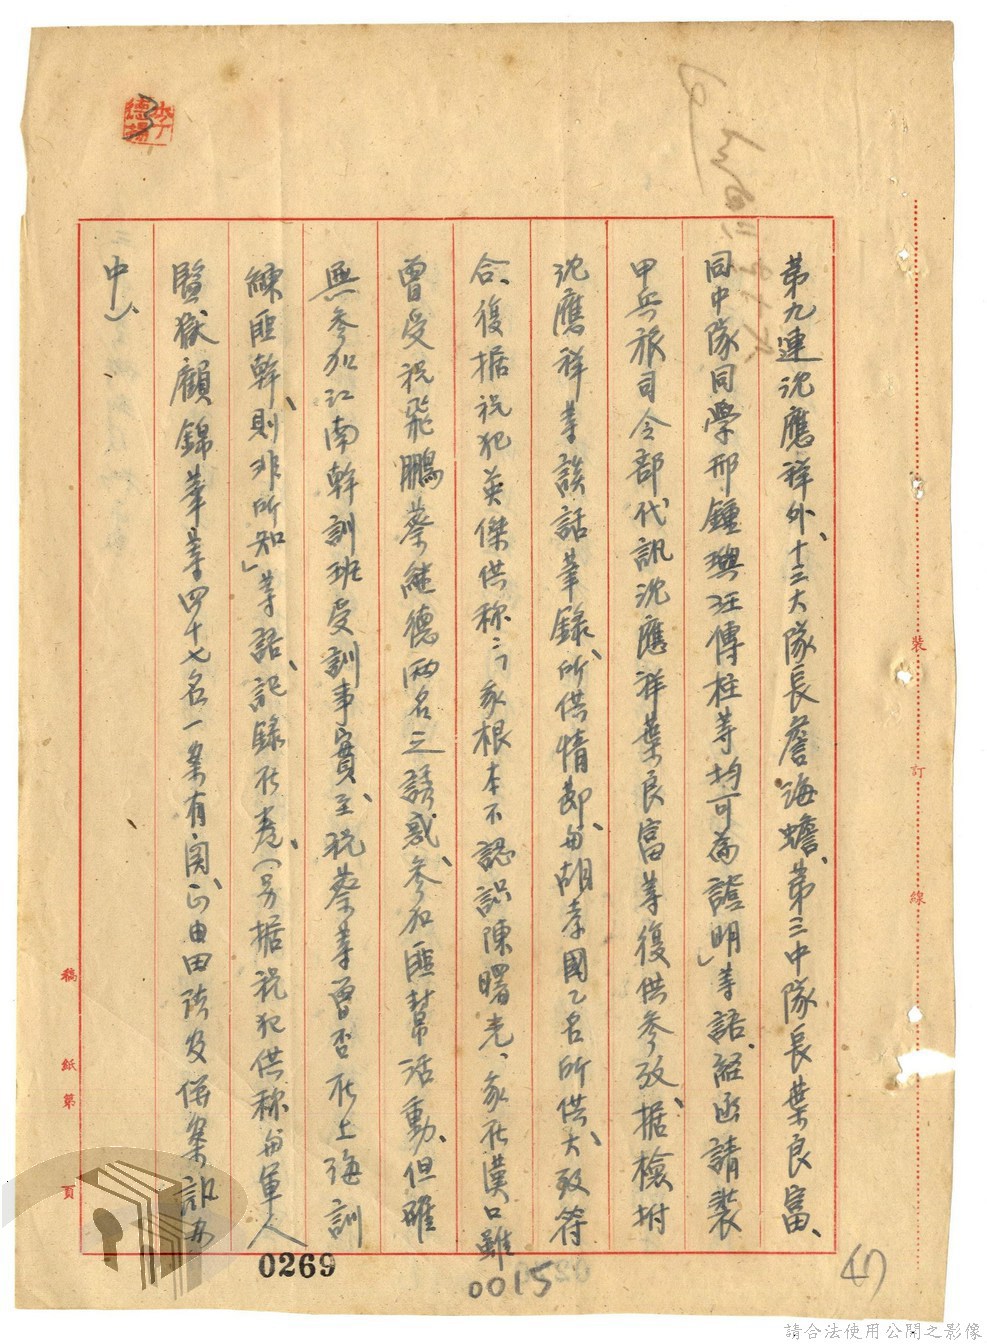 第九連沈應祥外、十三大隊長詹海蟾、第三中隊長葉良富、
同中隊同學邢鍾璵汪傳柱等均可為證明」等語、經函請裝
甲兵旅司令部代訊沈應祥葉良富等復供參攷、据檢附
沈應祥等談話筆錄、所供情節、与胡孝國乙名所供、大致符
合、復据祝犯英傑供称:「家根本不認識陳曙光、家在漢口雖
曾受祝飛鵬蔡繼德兩名之誘惑、參加匪幫活動、但確
無參加江南幹訓班受訓事實、至祝蔡等曾否在上海訓
練匪幹、則非所知」等語、記錄在卷、(另据祝犯供称与軍人
監獄顧錦華等四十七名一案有関、已由田 及併案訊办
中)、
裝
訂
線
稿紙第 頁
0269
0015
47
3
請合法使用公開之影像